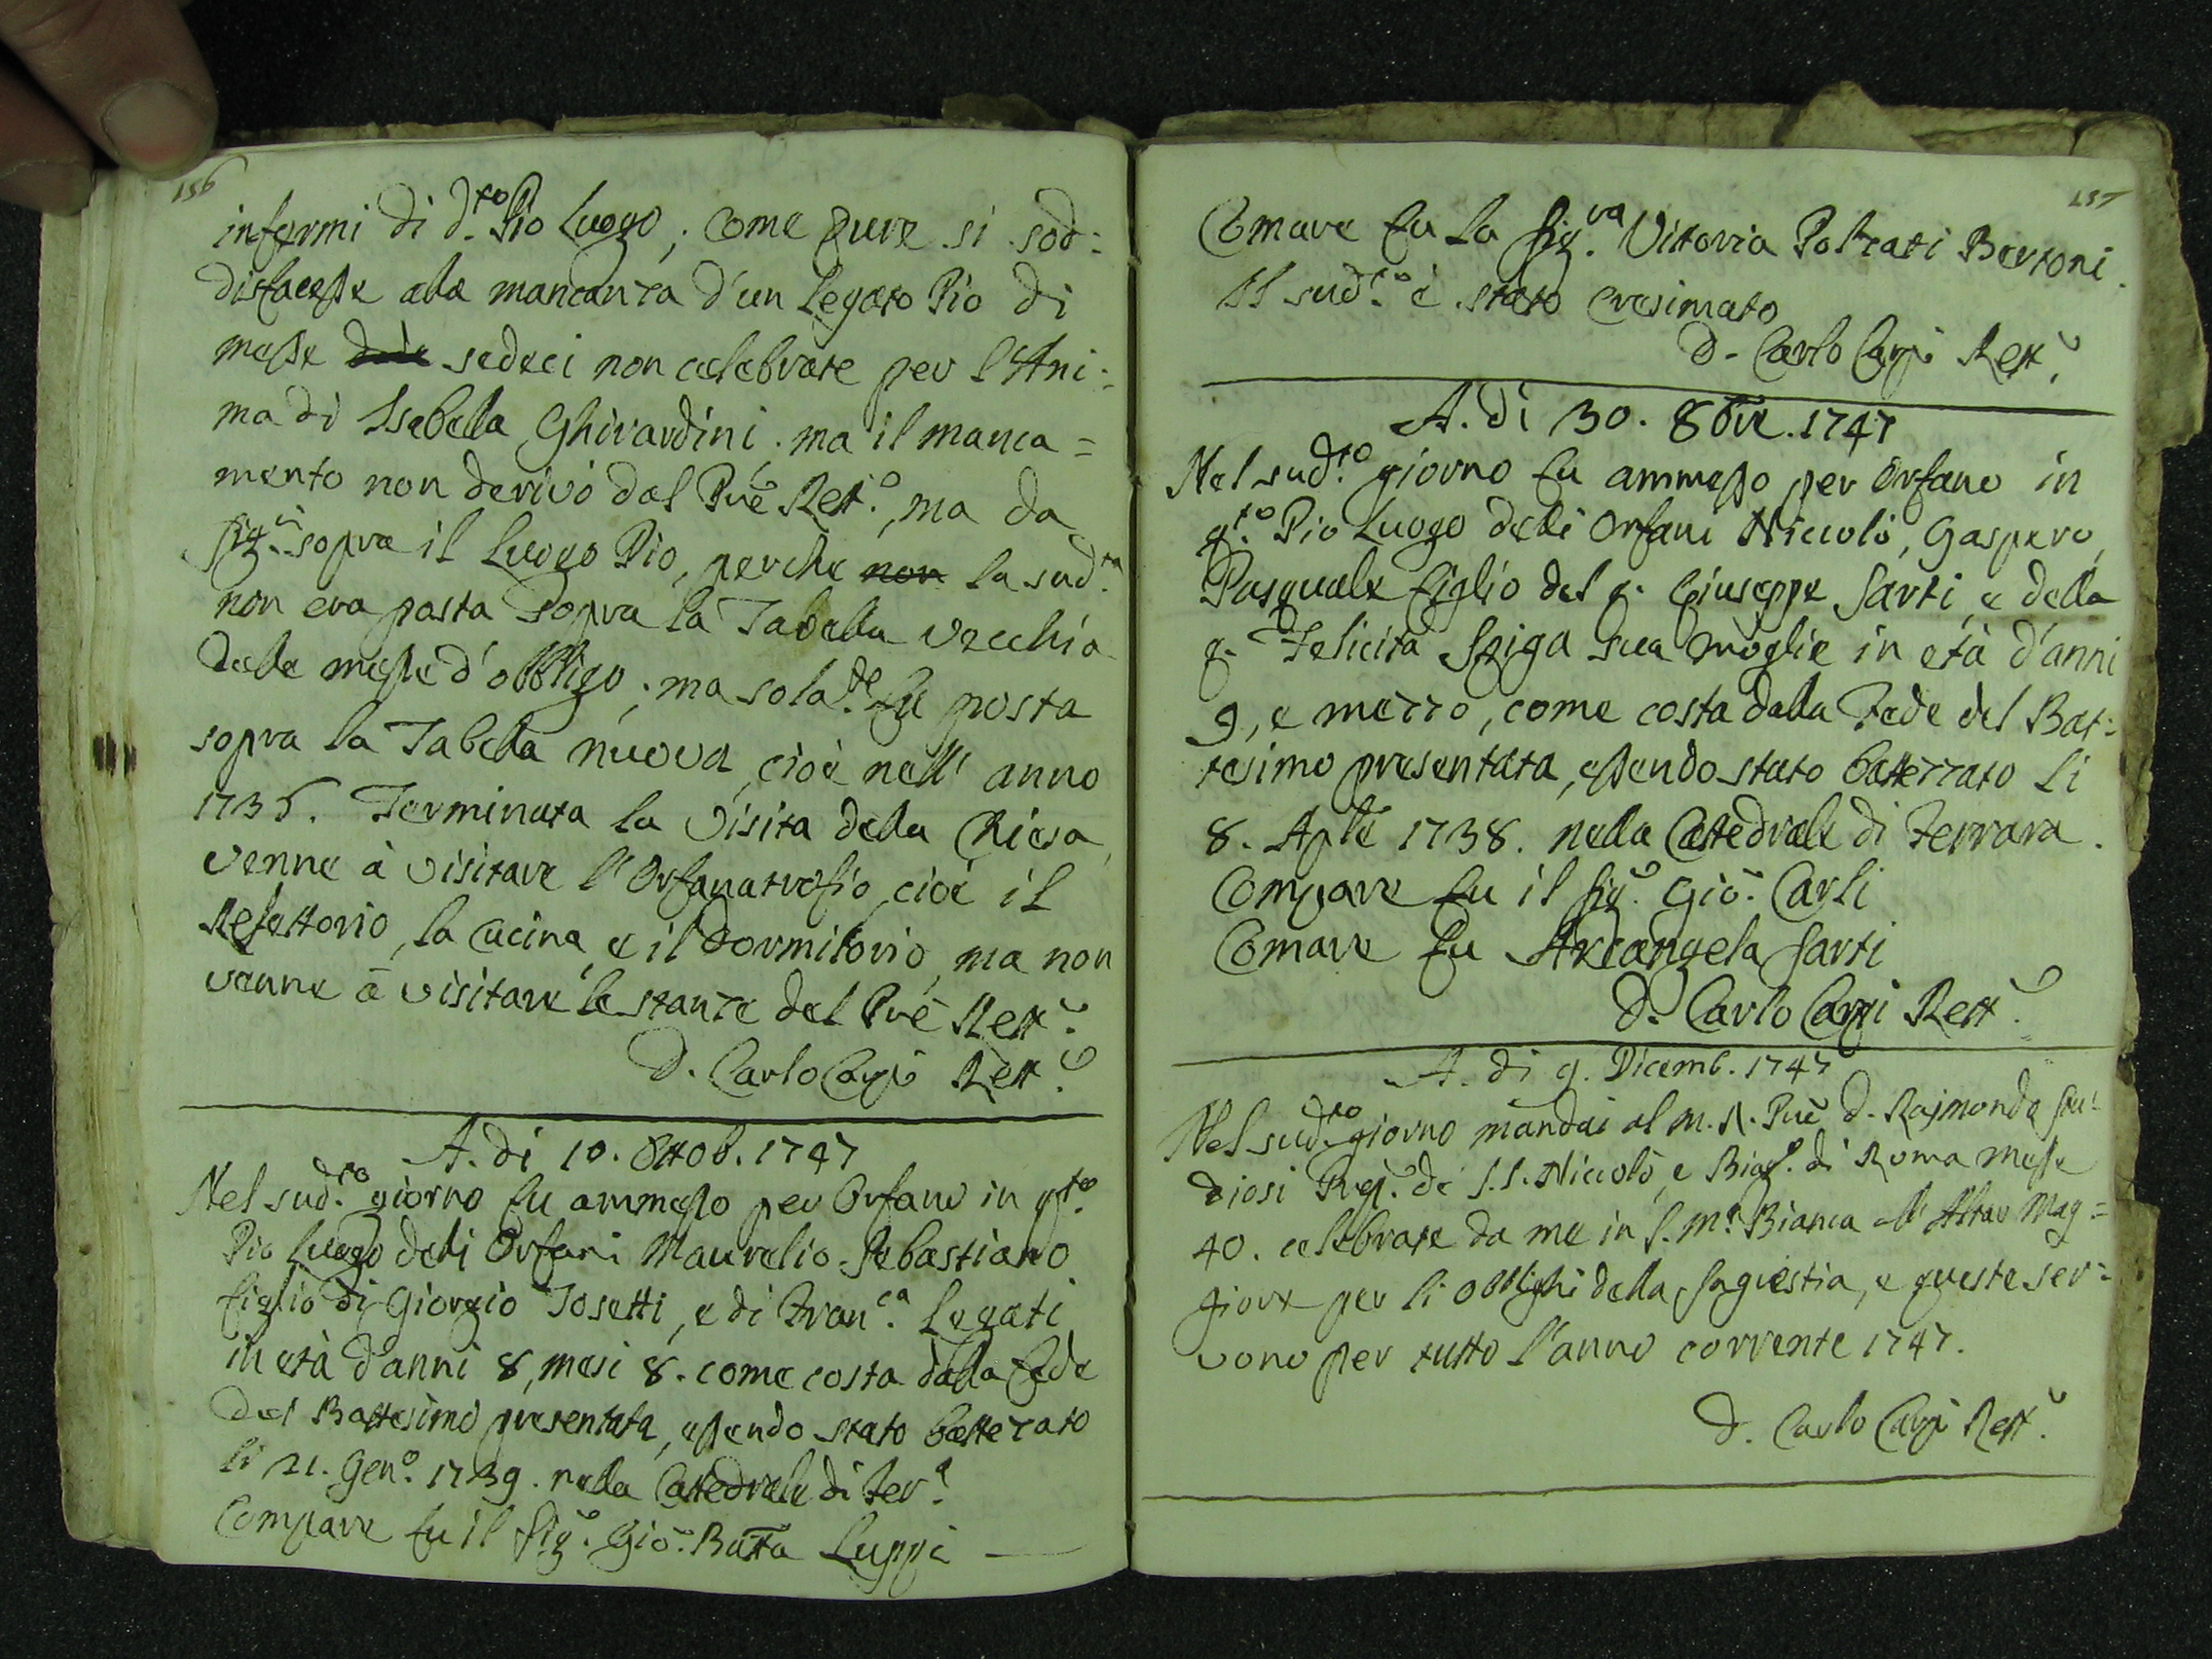 156
infermi di d.to Pio Luogo; come pure si sod:
disfacesse alla mancanza d'un Legato Pio di
messe sedeci non celebrate per l'Ani:
ma di Isabella Ghirardini. ma il manca=
mento non derivò dal Prē Rett.e, ma da
Sig.ri sopra il Luogo Pio, perche non la sud.ta
non era posta sopra la Tabella vecchia
delle messe d'obbligo; ma sola.te fu posta
sopra la Tabella nuova, cioè nell' anno
1736. Terminata la Visita della Chiesa,
venne à visitare l'Orfanatrofio, cioè il
Refettorio, la Cucina, e il Dormitorio, ma non
venne à visitare le stanze del Prē Rett.e
D. Carlo Carpi Rett.e
A. di 10. Ottob. 1747
Nel sud.to giorno fu ammesso per Orfano in q.to
Pio Luogo delli Orfani Maurelio Sebastiano
figlio di Giorgio Tosetti, e di Fran.ca Legati
in età d'anni 8, mesi 8. come costa dalla fede
del Battesimo presentata, essendo stato battezato
li 21. Gen.o 1739. nella Cattedrale di Fer.a
Compare fu il Sig.e Giō. Batta Luppi
157
Comare fu la Sig.ra Vittoria Bertoni.
Il sud.to è stato cresimato
D. Carlo Carpi Rett.e
A. di 30. 8bre. 1747
Nel sud.to giorno fu ammesso per Orfano in
q.to Pio Luogo delli Orfani Niccolò, Gaspero,
Pasquale figlio del q. Giuseppe Sarti, e della
q. Felicita Spiga sua moglie in età d'anni
9, e mezzo, come costa dalla Fede del Bat:
tesimo presentata, essendo stato battezzato li
8. Aple 1738. nella Cattedrale di Ferrara.
Compare fu il Sig.e Giō. Carli
Comare fu Arcangela Sarti
D. Carlo Carpi Rett.e
A. di 9. Dicemb. 1747
Nel sud.to giorno mandai al M. R. Prē D. Rajmondo Stu:
diosi di S.S. Niccolò, e Biag.o di Roma messe
40. celebrate da me in S. M.a Bianca all' Altar Mag=
giore per li obblighi della Sagrestia, e queste ser:
vono per tutto l'anno corrente 1747.
D. Carlo Carpi Rett.e